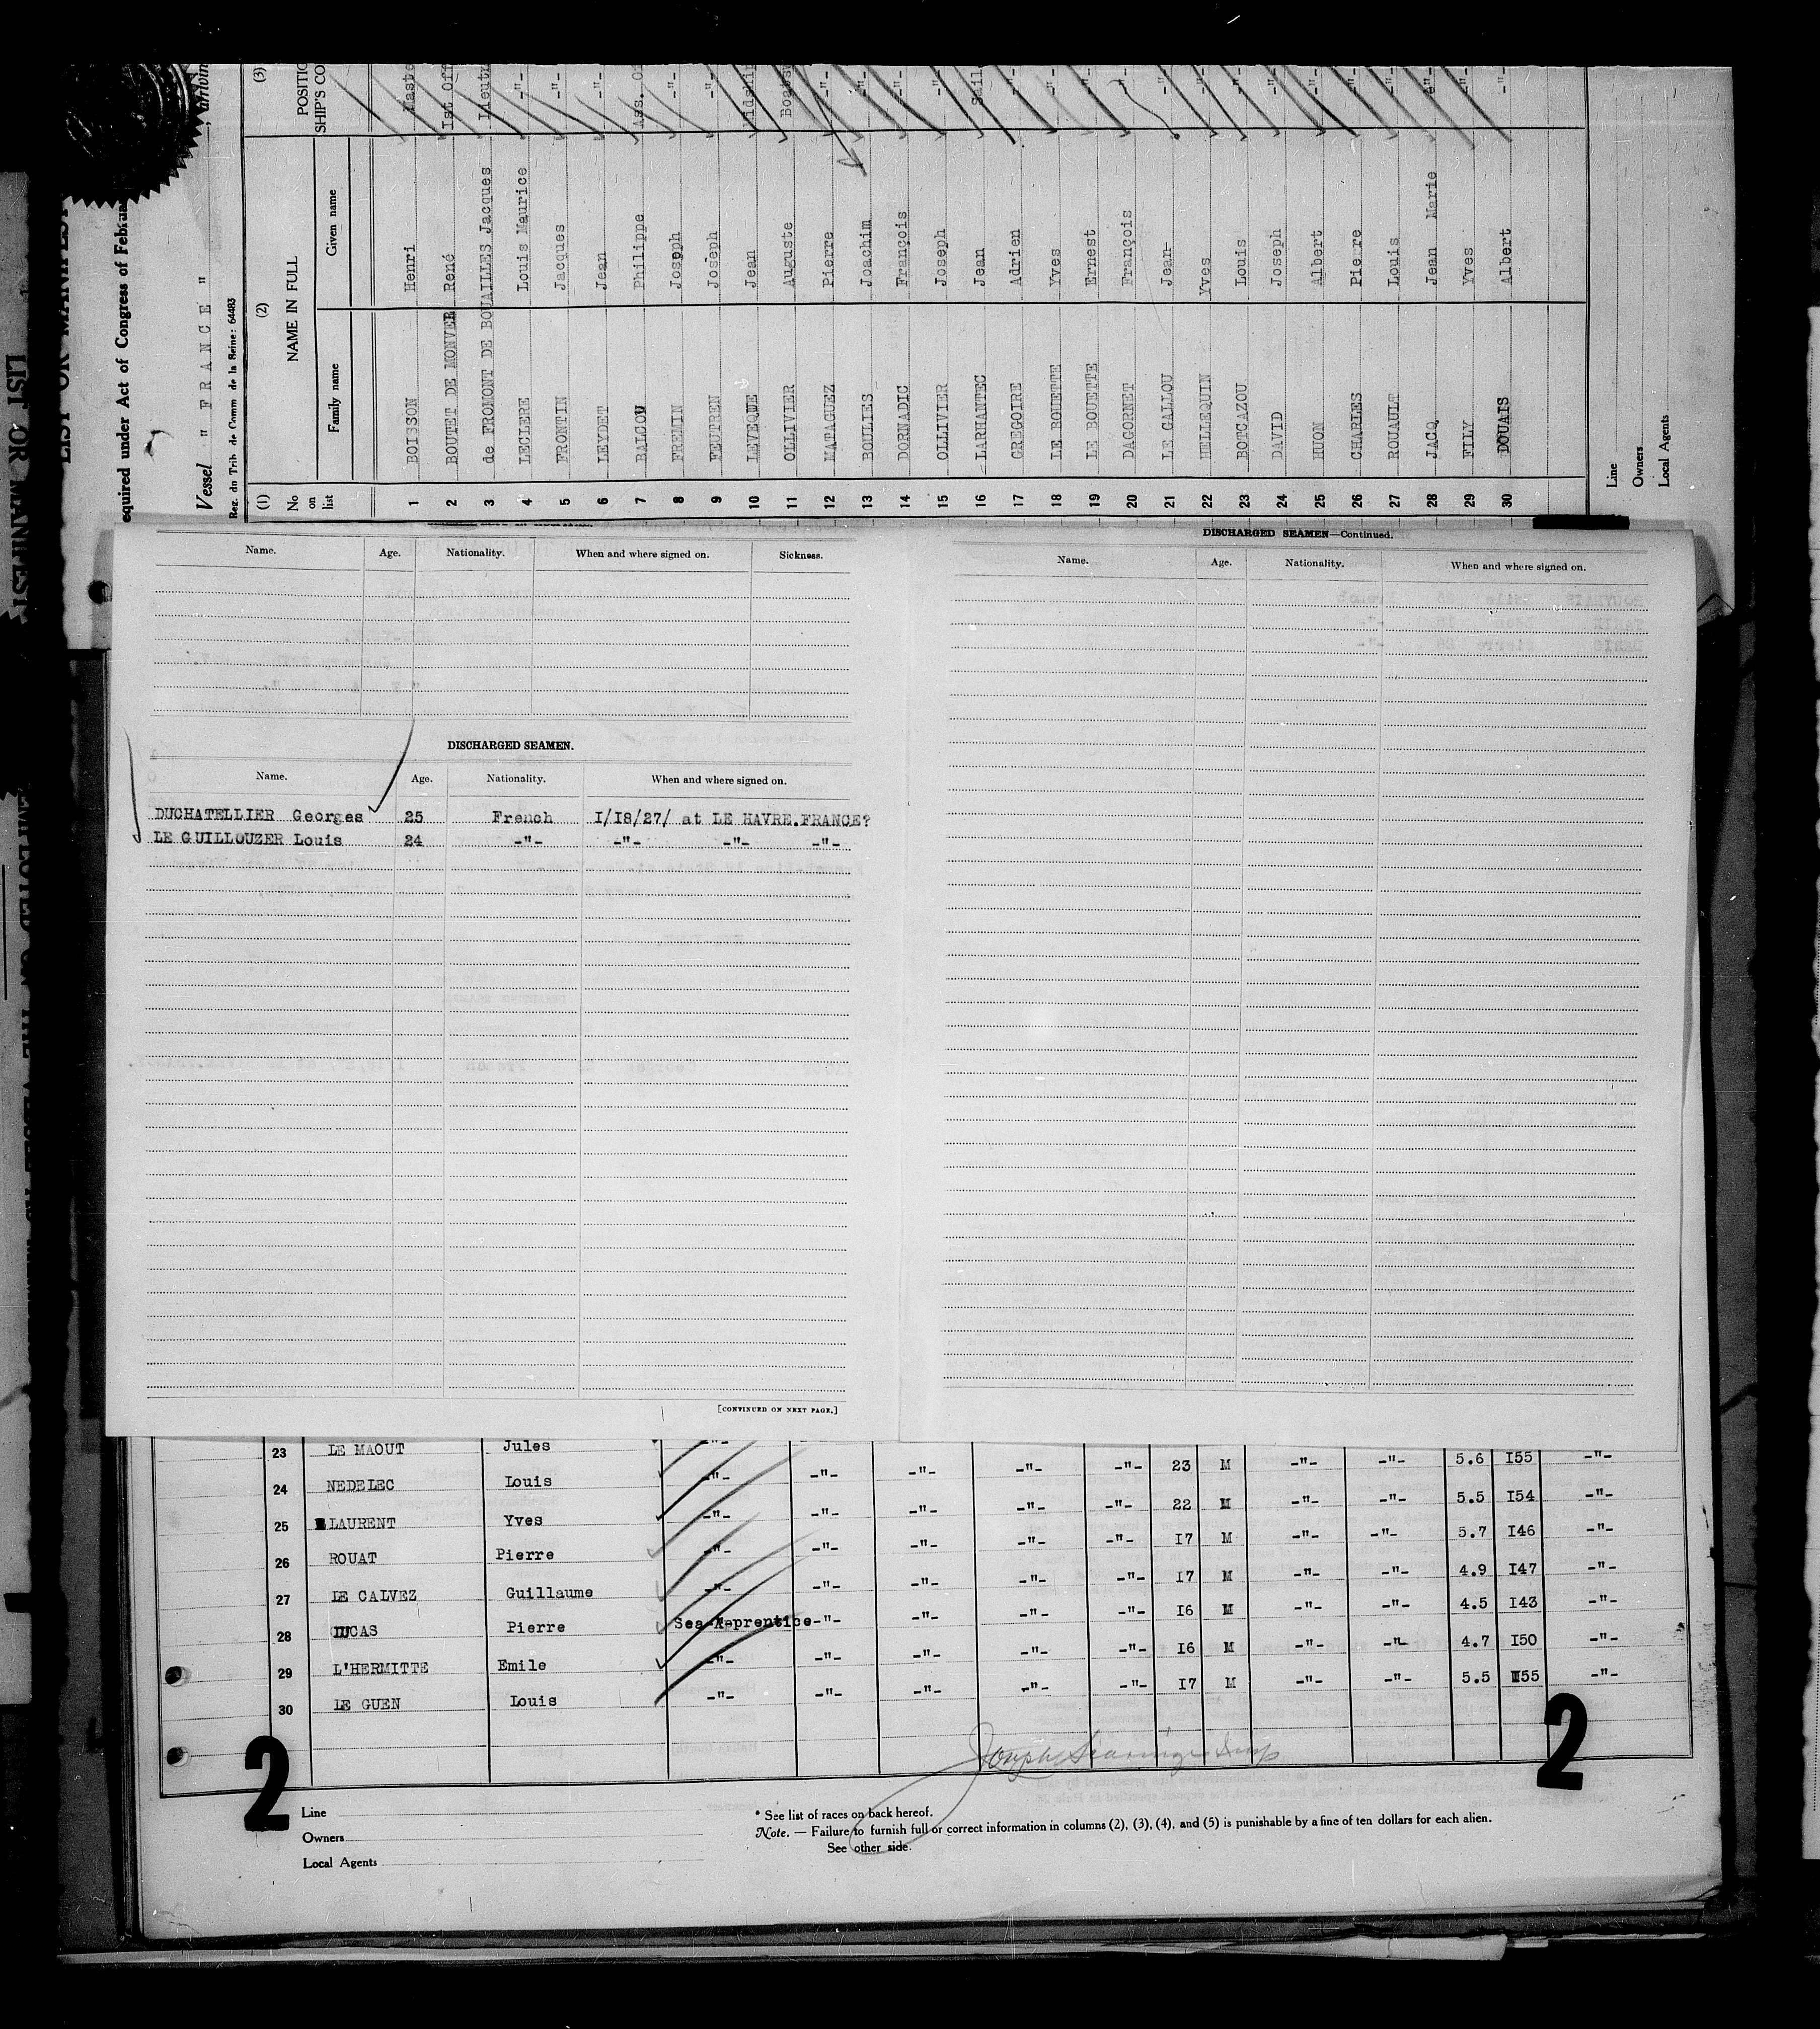 LIST OR MANIFEST
equired under Act of Congress of Februa
Vessel " FRANCE "
Reg. du Trib de Comm de la Seine: 64483
(1) (2) (3)
No on list
NAME IN FULL
Family name Given name
POSITIO
SHIP'S CO
1 BOISSON Henri
2 BOUTET DE MONVEL René Ist Off
3 de FROMONT DE BOUAILLES Jacques Lieut
4 LECLERE Louis Maurice -"-
5 FRONTIN Jacques -"-
6 LEYDET Jean -"-
7 BALCOU Philippe Ass. Of
8 FREMIN Joseph -"-
9 FEUTREN Joseph -"-
10 LEVEQUE Jean
11 OLLIVIER Auguste
12 MATAGUEZ Pierre -"-
13 BOULIES Joachim -"-
14 DORNADIC François -"-
15 OLLIVIER Joseph -"-
16 LARHANTEC Jean Sail
17 GREGOIRE Adrien -"-
18 LE BOUETTE Yves -"-
19 LE BOUETTE Ernest -"-
20 DAGORNET François -"-
21 LE GALLOU Jean -"-
22 HELLEQUIN Yves -"-
23 BOTCAZOU Louis -"-
24 DAVID Joseph -"-
25 HUON Albert -"-
26 CHARLES Pierre -"-
27 ROUAULT Louis -"-
28 JACQ Jean Marie -"-
29 FILY Yves -"-
30 DOUAIS Albert -"-
Line
Owners
Local Agents
Name. Age. Nationality. When and where signed on. Sickness.
DISCHARGED SEAMEN.
Name. Age. Nationality. When and where signed on.
DUCHATELLIER Georges 25 French I/I8/27/ at LE HAVRE.FRANCE?
LE GUILLOUZER Louis 24 -"- -"- -"- -"-
[CONTINUED ON NEXT PAGE.]
DISCHARGED SEAMEN—Continued.
Name. Age. Nationality. When and where signed on.
23 LE MAOUT Jules -"-
24 NEDELEC Louis -"- -"- -"- -"- -"- 23 M -"- -"- 5.6 I55 -"-
25 LAURENT Yves -"- -"- -"- -"- -"- 22 M -"- -"- 5.5 I54 -"-
26 ROUAT Pierre -"- -"- -"- -"- -"- I7 M -"- -"- 5.7 I46 -"-
27 LE CALVEZ Guillaume -"- -"- -"- -"- -"- I7 M -"- -"- 4.9 I47 -"-
28 LUCAS Pierre Sea-Apprentice -"- -"- -"- -"- I6 M -"- -"- 4.5 I43 -"-
29 L'HERMITTE Emile -"- -"- -"- -"- -"- I6 M -"- -"- 4.7 I50 -"-
30 LE GUEN Louis -"- -"- -"- -"- -"- I7 M -"- -"- 5.5 I55 -"-
2 2
Line
Owners
Local Agents
* See list of races on back hereof.
Note. — Failure to furnish full or correct information in columns (2), (3), (4), and (5) is punishable by a fine of ten dollars for each alien.
See other side.